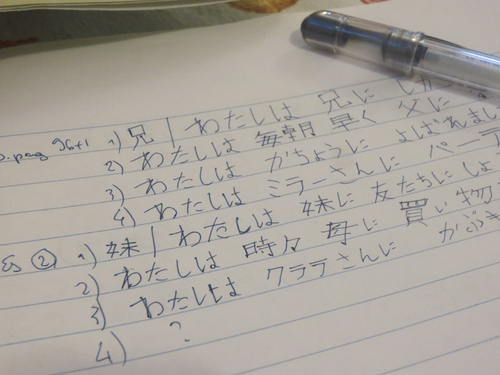 D.pag 96+1 1) 兄 | わたしは 兄に しか
2) わたしは 毎朝 早く 父に
3) わたしは かちょうに よばれまし
4) わたしは ミラーさんに パーテ
② 1) 妹 | わたしは 妹に 友たちに しょ
2) わたしは 時々 母に 買い物
3) わたしは クララさんに かぶき
4) ?